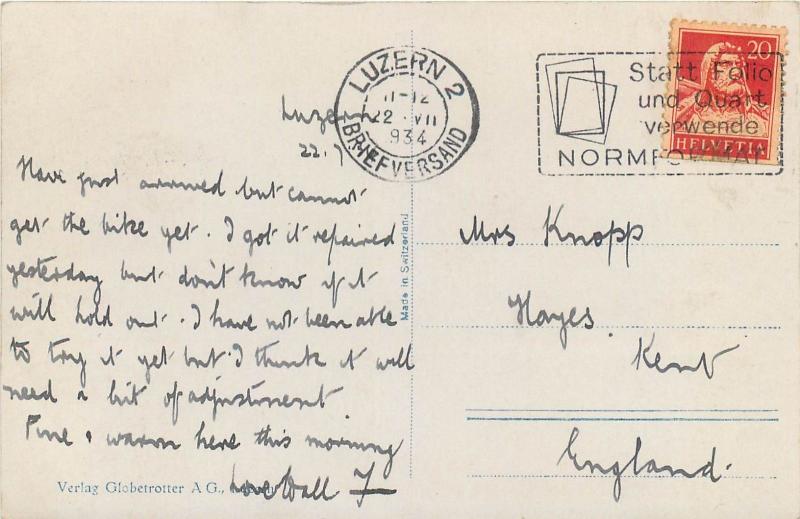 LUZERN 2
11-12
22 . VII
934
BRIEFVERSAND
Statt Folio
und Quart
verwende
NORMFORMAT
20
HELVETIA
Luzern
22.7
Have just arrived but cannot
get the bike yet. I got it repaired
yesterday but don't know if it
will hold out. I have not been able
to try it yet but I think it will
need a bit of adjustment
Fine & warm here this morning
Love to all F
Verlag Globetrotter A G.,
Made in Switzerland
Mrs Knopp
Hayes
Kent
England.